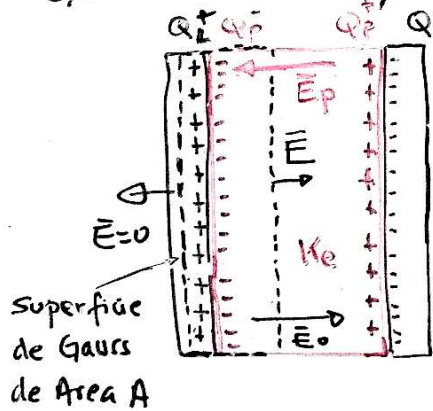 Q_L^+ Q_P^- Q_P^+ Q
Ēp
Ē
Ē=0
Ke
Ē₀
superficie
de Gauss
de Area A